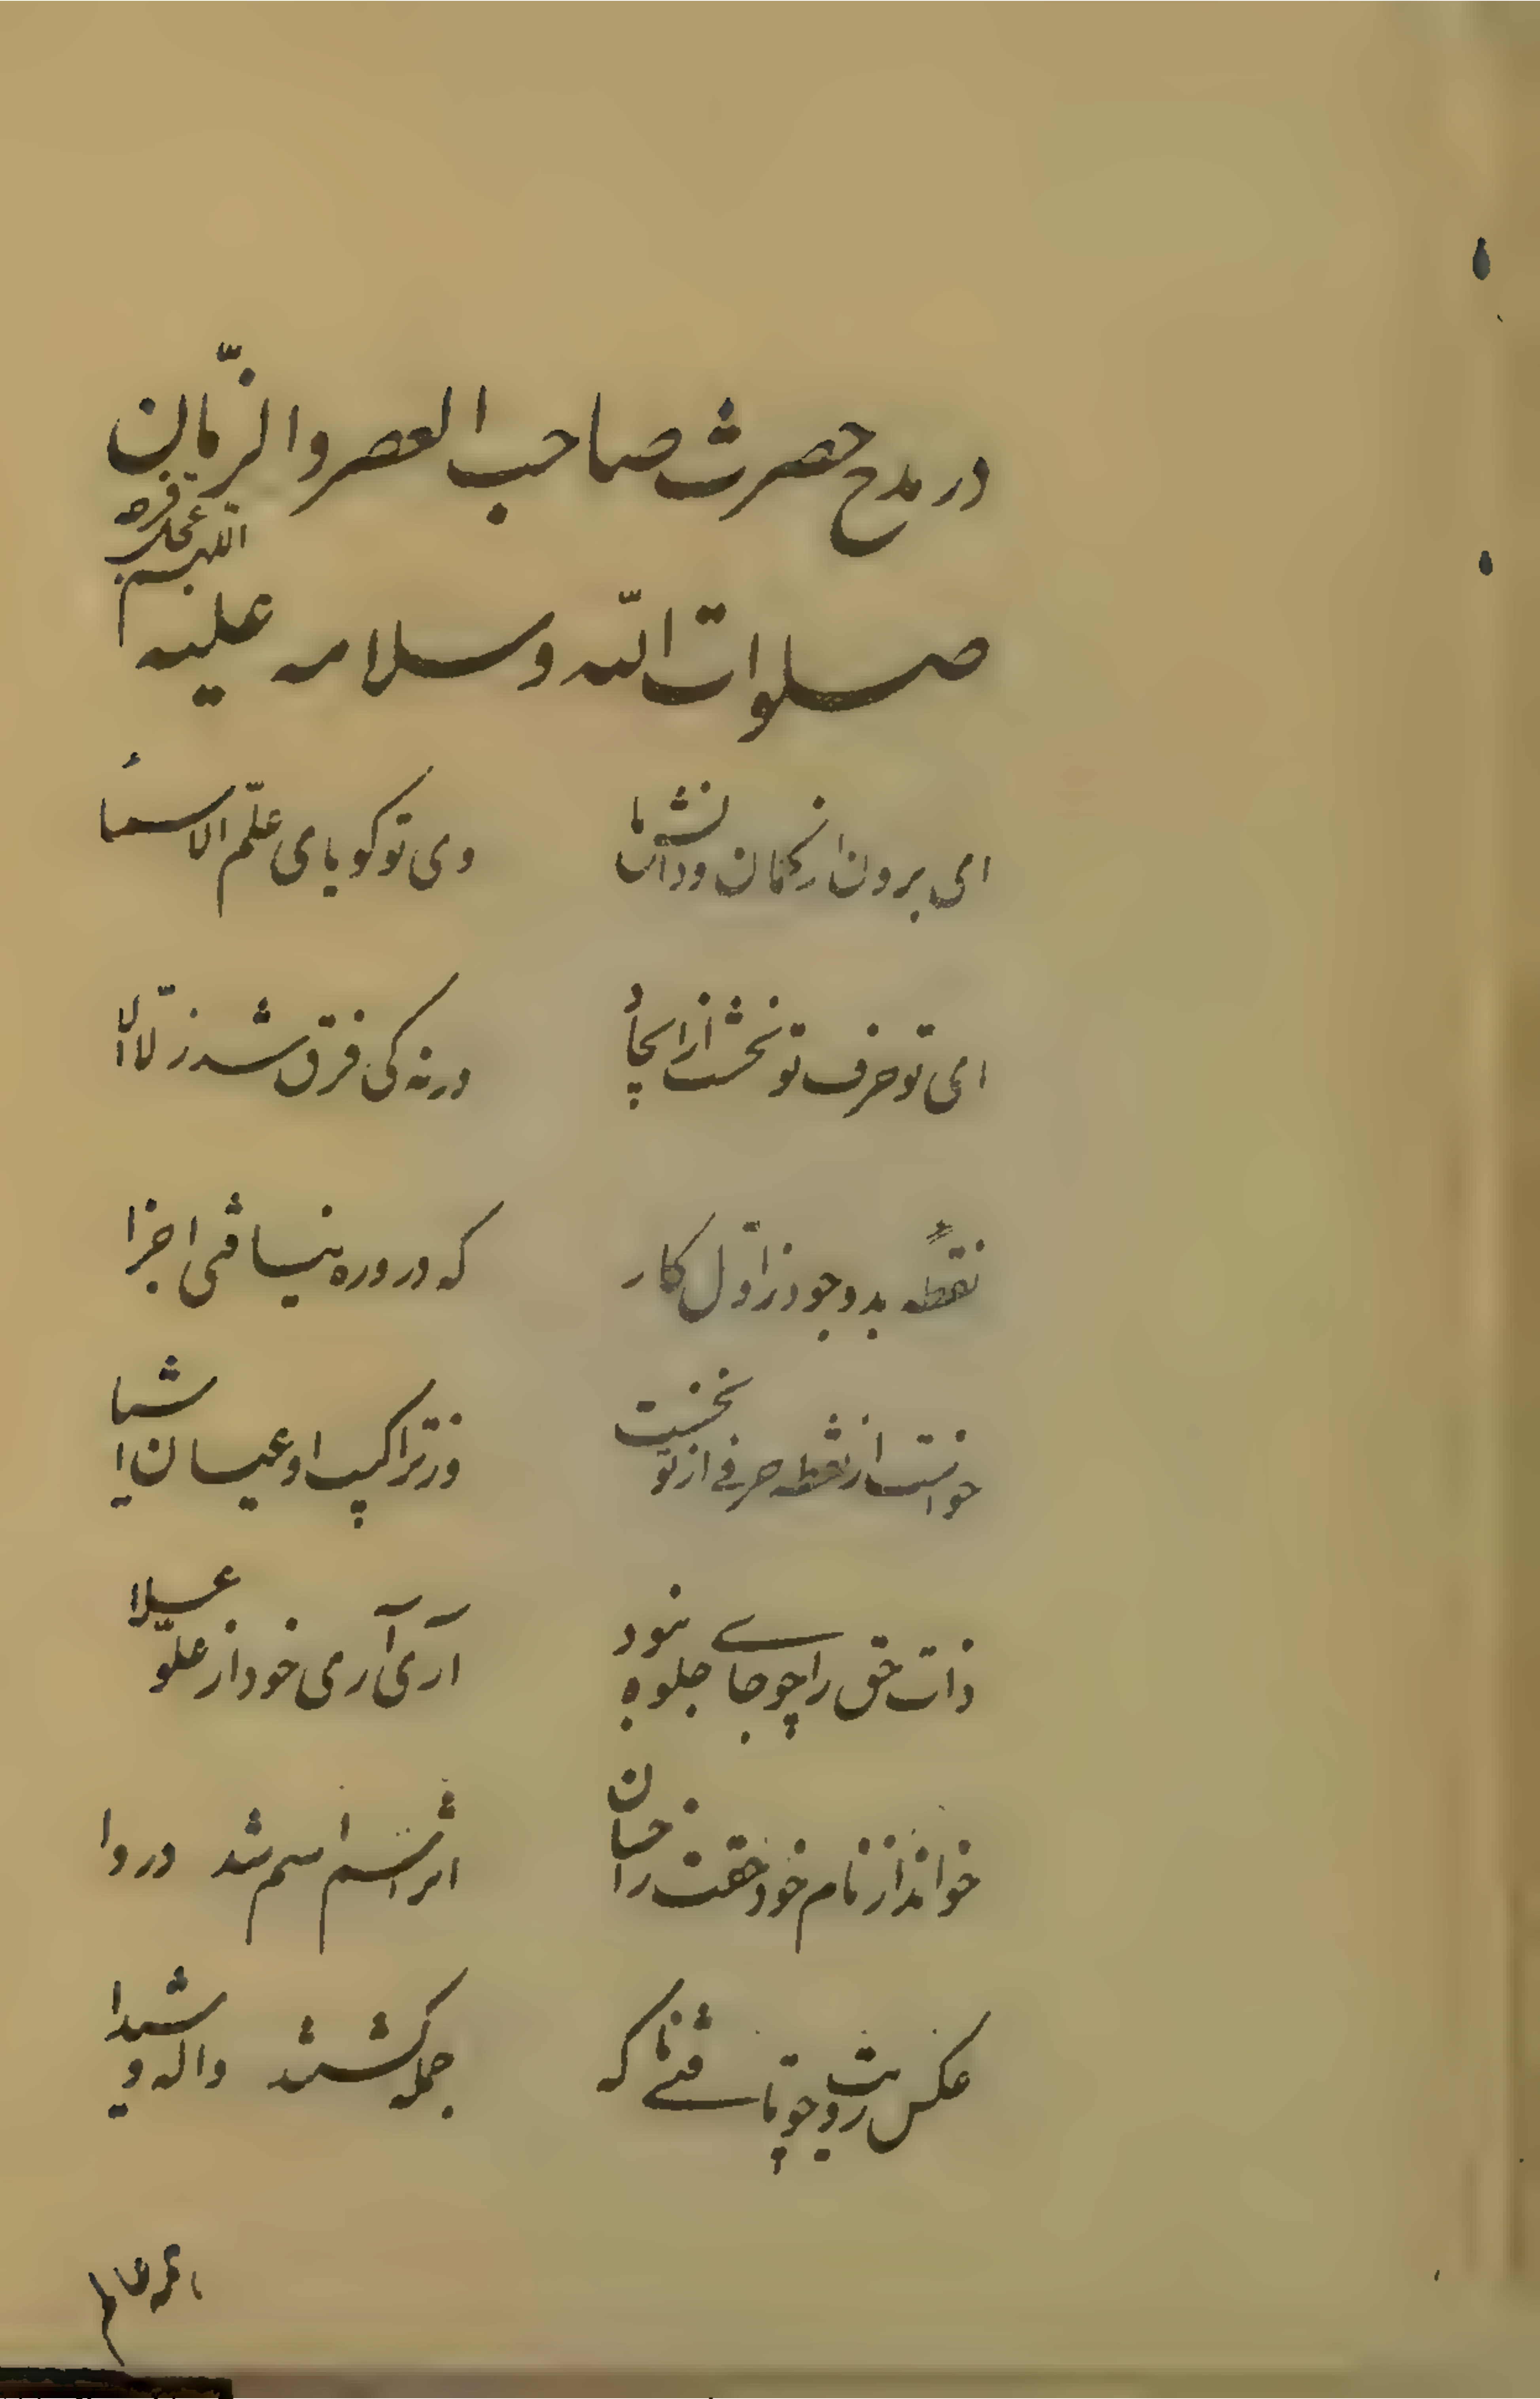 در مدح حضرت صاحب العصر والزّمان
اللهم عجل فرجه
صلوات اللّه وسلامه علیه
ای برون از کمان ودانش ما وی تو کویای علّم الاسمأ
ای تو حرف نخست از ایجاد ورنه کی فرق شد ز لا الّا
نقطهٔ بد وجود ز اوّل کار که در وره نیافتی اجزا
خواست از نقطه حرفی از تو نخست وز تراکیب او عیان اشیا
ذات حق را چو جای جلوه نبود آری آری خود از علوّ علا
خواند از نام خود حقت راحسان اثر اسم شد در وا
عکس رویت چو یافتی ناکه جمله کشتند واله و شیدا